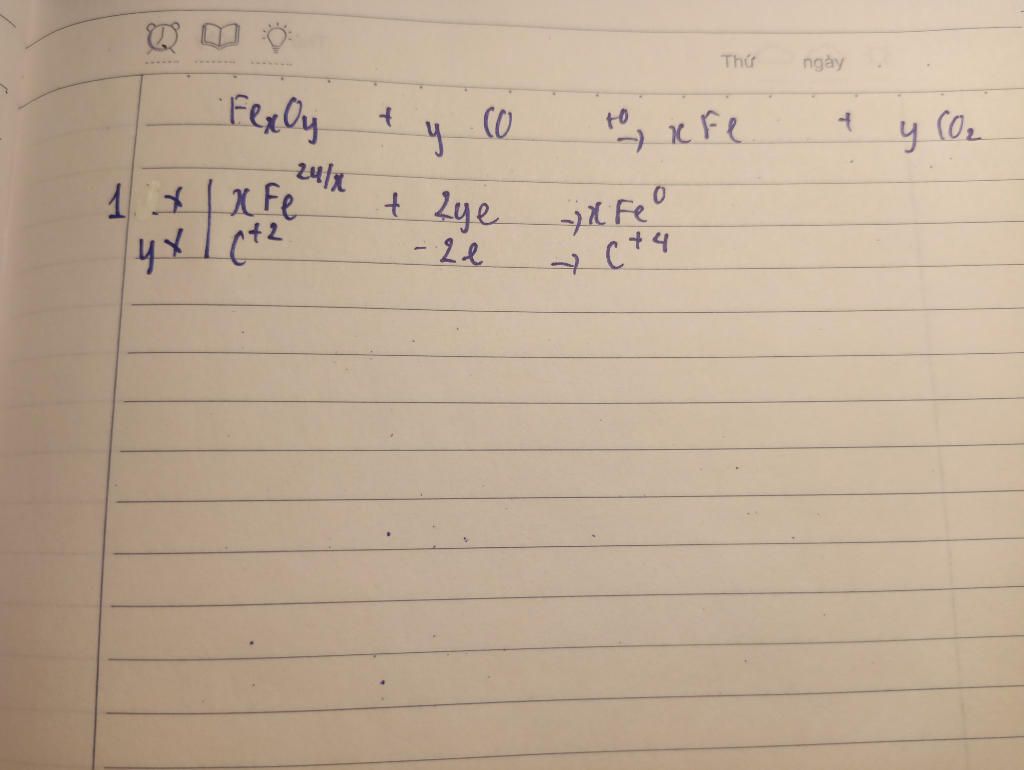 Thứ ngày
FeₓOy + y CO t⁰→ x Fe + y CO₂
1 x | x Fe^2y/x + 2ye → x Fe⁰
y x | C⁺² - 2e → C⁺⁴